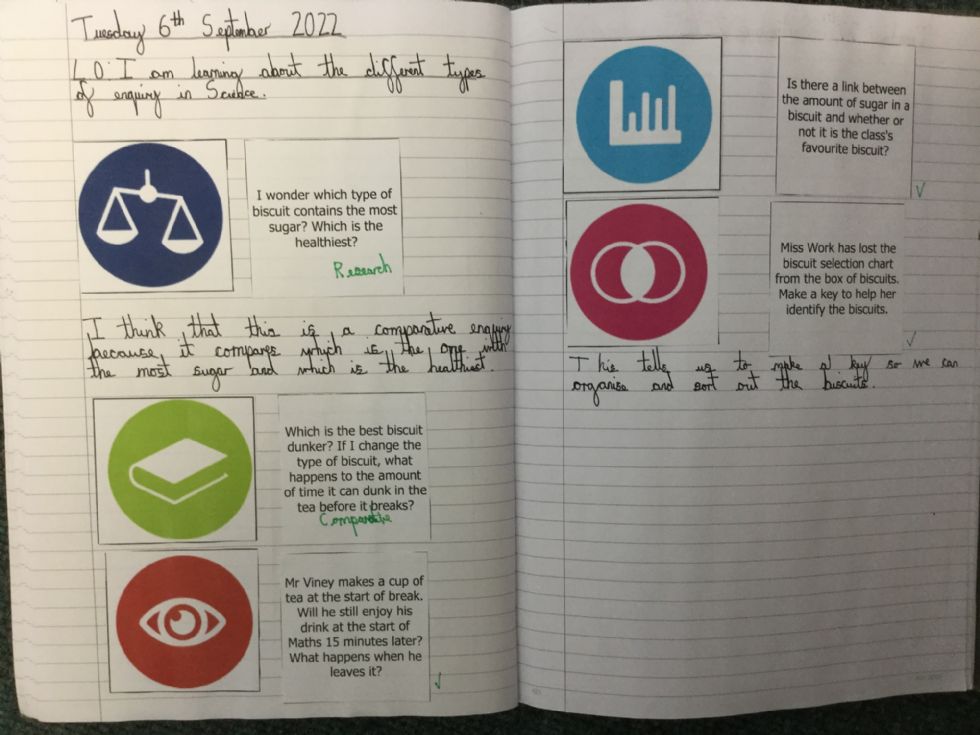 Tuesday 6th September 2022
L.O: I am learning about the different types
of enquiry in Science.
I wonder which type of
biscuit contains the most
sugar? Which is the
healthiest?
Research
I think that this is a comparative enquiry
because it compares which is the one with
the most sugar and which is the healthiest.
Which is the best biscuit
dunker? If I change the
type of biscuit, what
happens to the amount
of time it can dunk in the
tea before it breaks?
Comparative
Mr Viney makes a cup of
tea at the start of break.
Will he still enjoy his
drink at the start of
Maths 15 minutes later?
What happens when he
leaves it?
Is there a link between
the amount of sugar in a
biscuit and whether or
not it is the class's
favourite biscuit?
Miss Work has lost the
biscuit selection chart
from the box of biscuits.
Make a key to help her
identify the biscuits.
This tells us to make a key so we can
organise and sort out the biscuits.